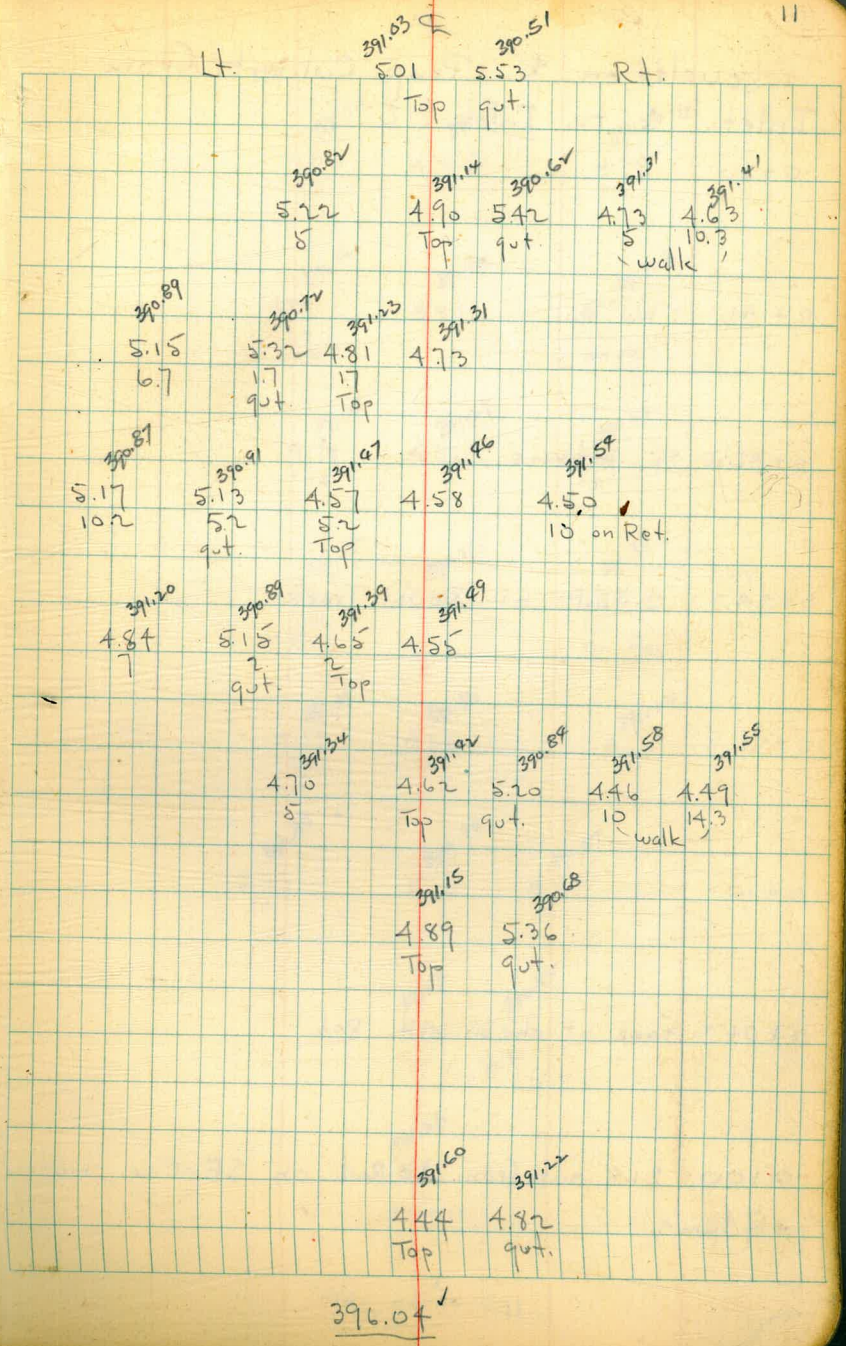 11
391.03 ℄ 390.51
Lt. 5.01 5.53 Rt.
Top gut.
390.82 391.14 390.62 391.31 391.41
5.22 4.90 5.42 4.73 4.63
5 Top gut. 5 10.3
( walk )
390.89 390.72 391.23 391.31
5.15 5.32 4.81 4.73
6.7 1.7 1.7
gut. Top
390.87 390.91 391.47 391.46 391.54
5.17 5.13 4.57 4.58 4.50
10.2 5.2 5.2 10 on Ret.
gut. Top
391.20 390.89 391.39 391.49
4.84 5.15 4.65 4.55
7 2 2
gut. Top
391.34 391.42 390.84 391.58 391.55
4.70 4.62 5.20 4.46 4.49
5 Top gut. 10 14.3
( walk )
391.15 390.68
4.89 5.36
Top gut.
391.60 391.22
4.44 4.82
Top gut.
396.04 ✓